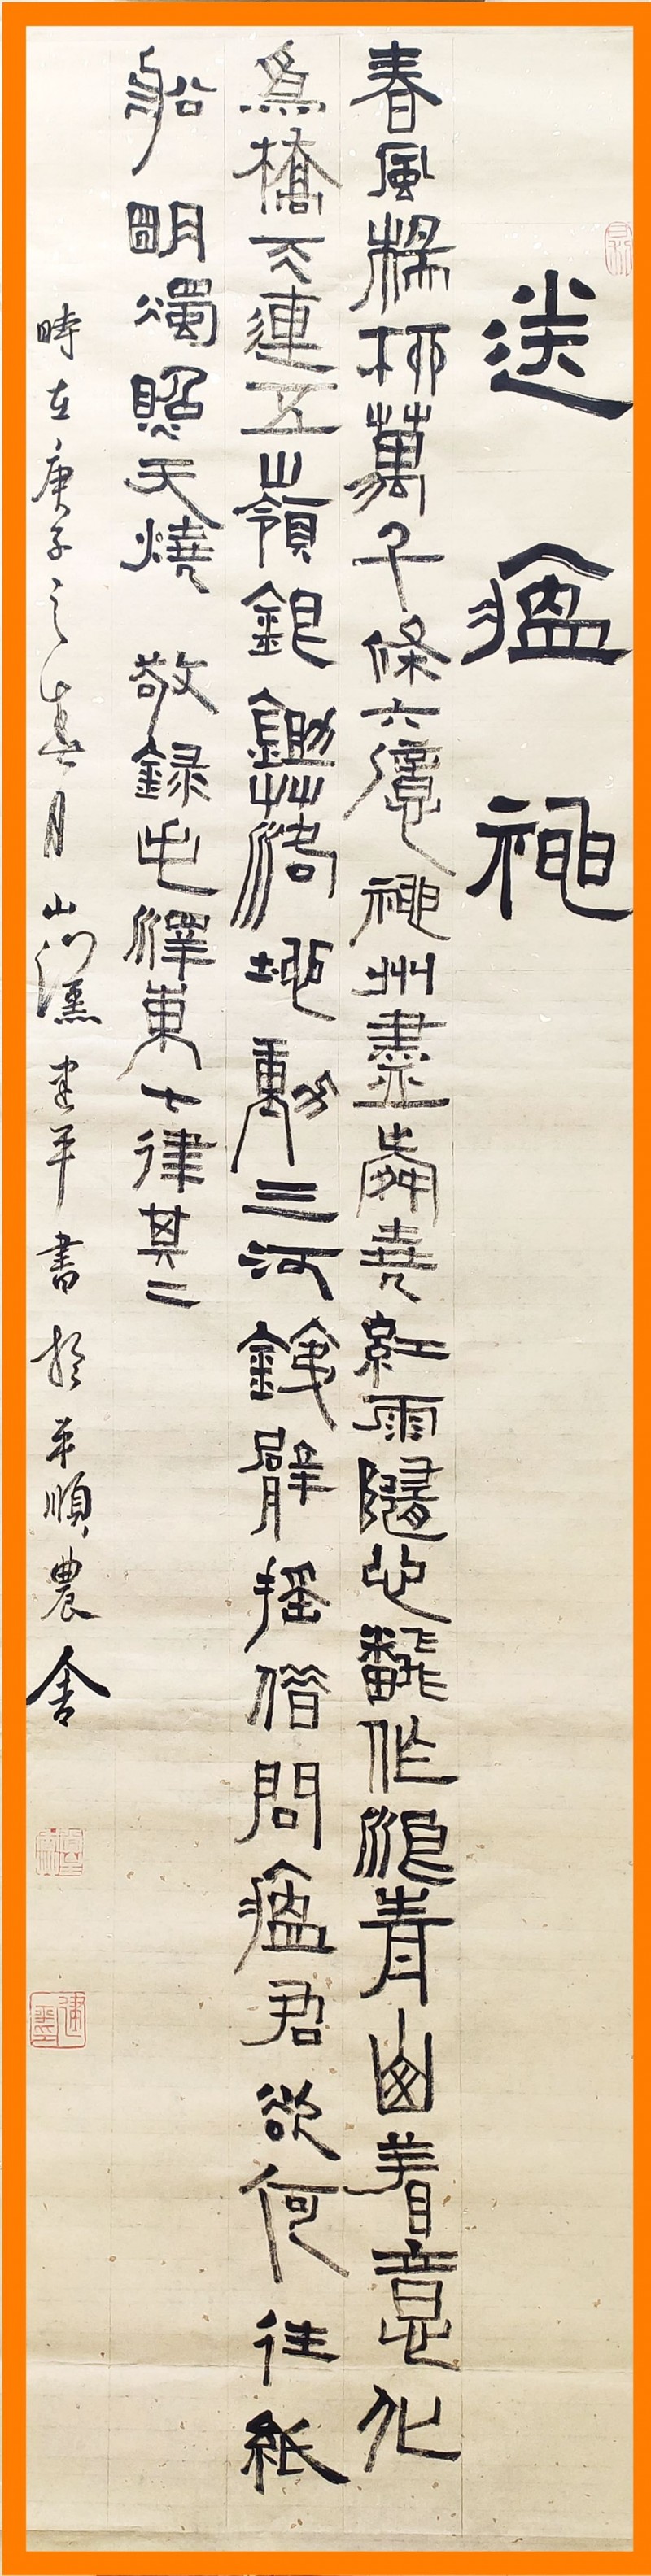 送瘟神
春風楊柳萬千條六億神州盡舜堯紅雨隨心翻作浪青山着意化
為橋天連五嶺銀鋤落地動三河鐵臂搖借問瘟君欲何往紙
船明燭照天燒 敬録毛澤東七律其二
時在庚子之春月山溪建平書於平順農舍